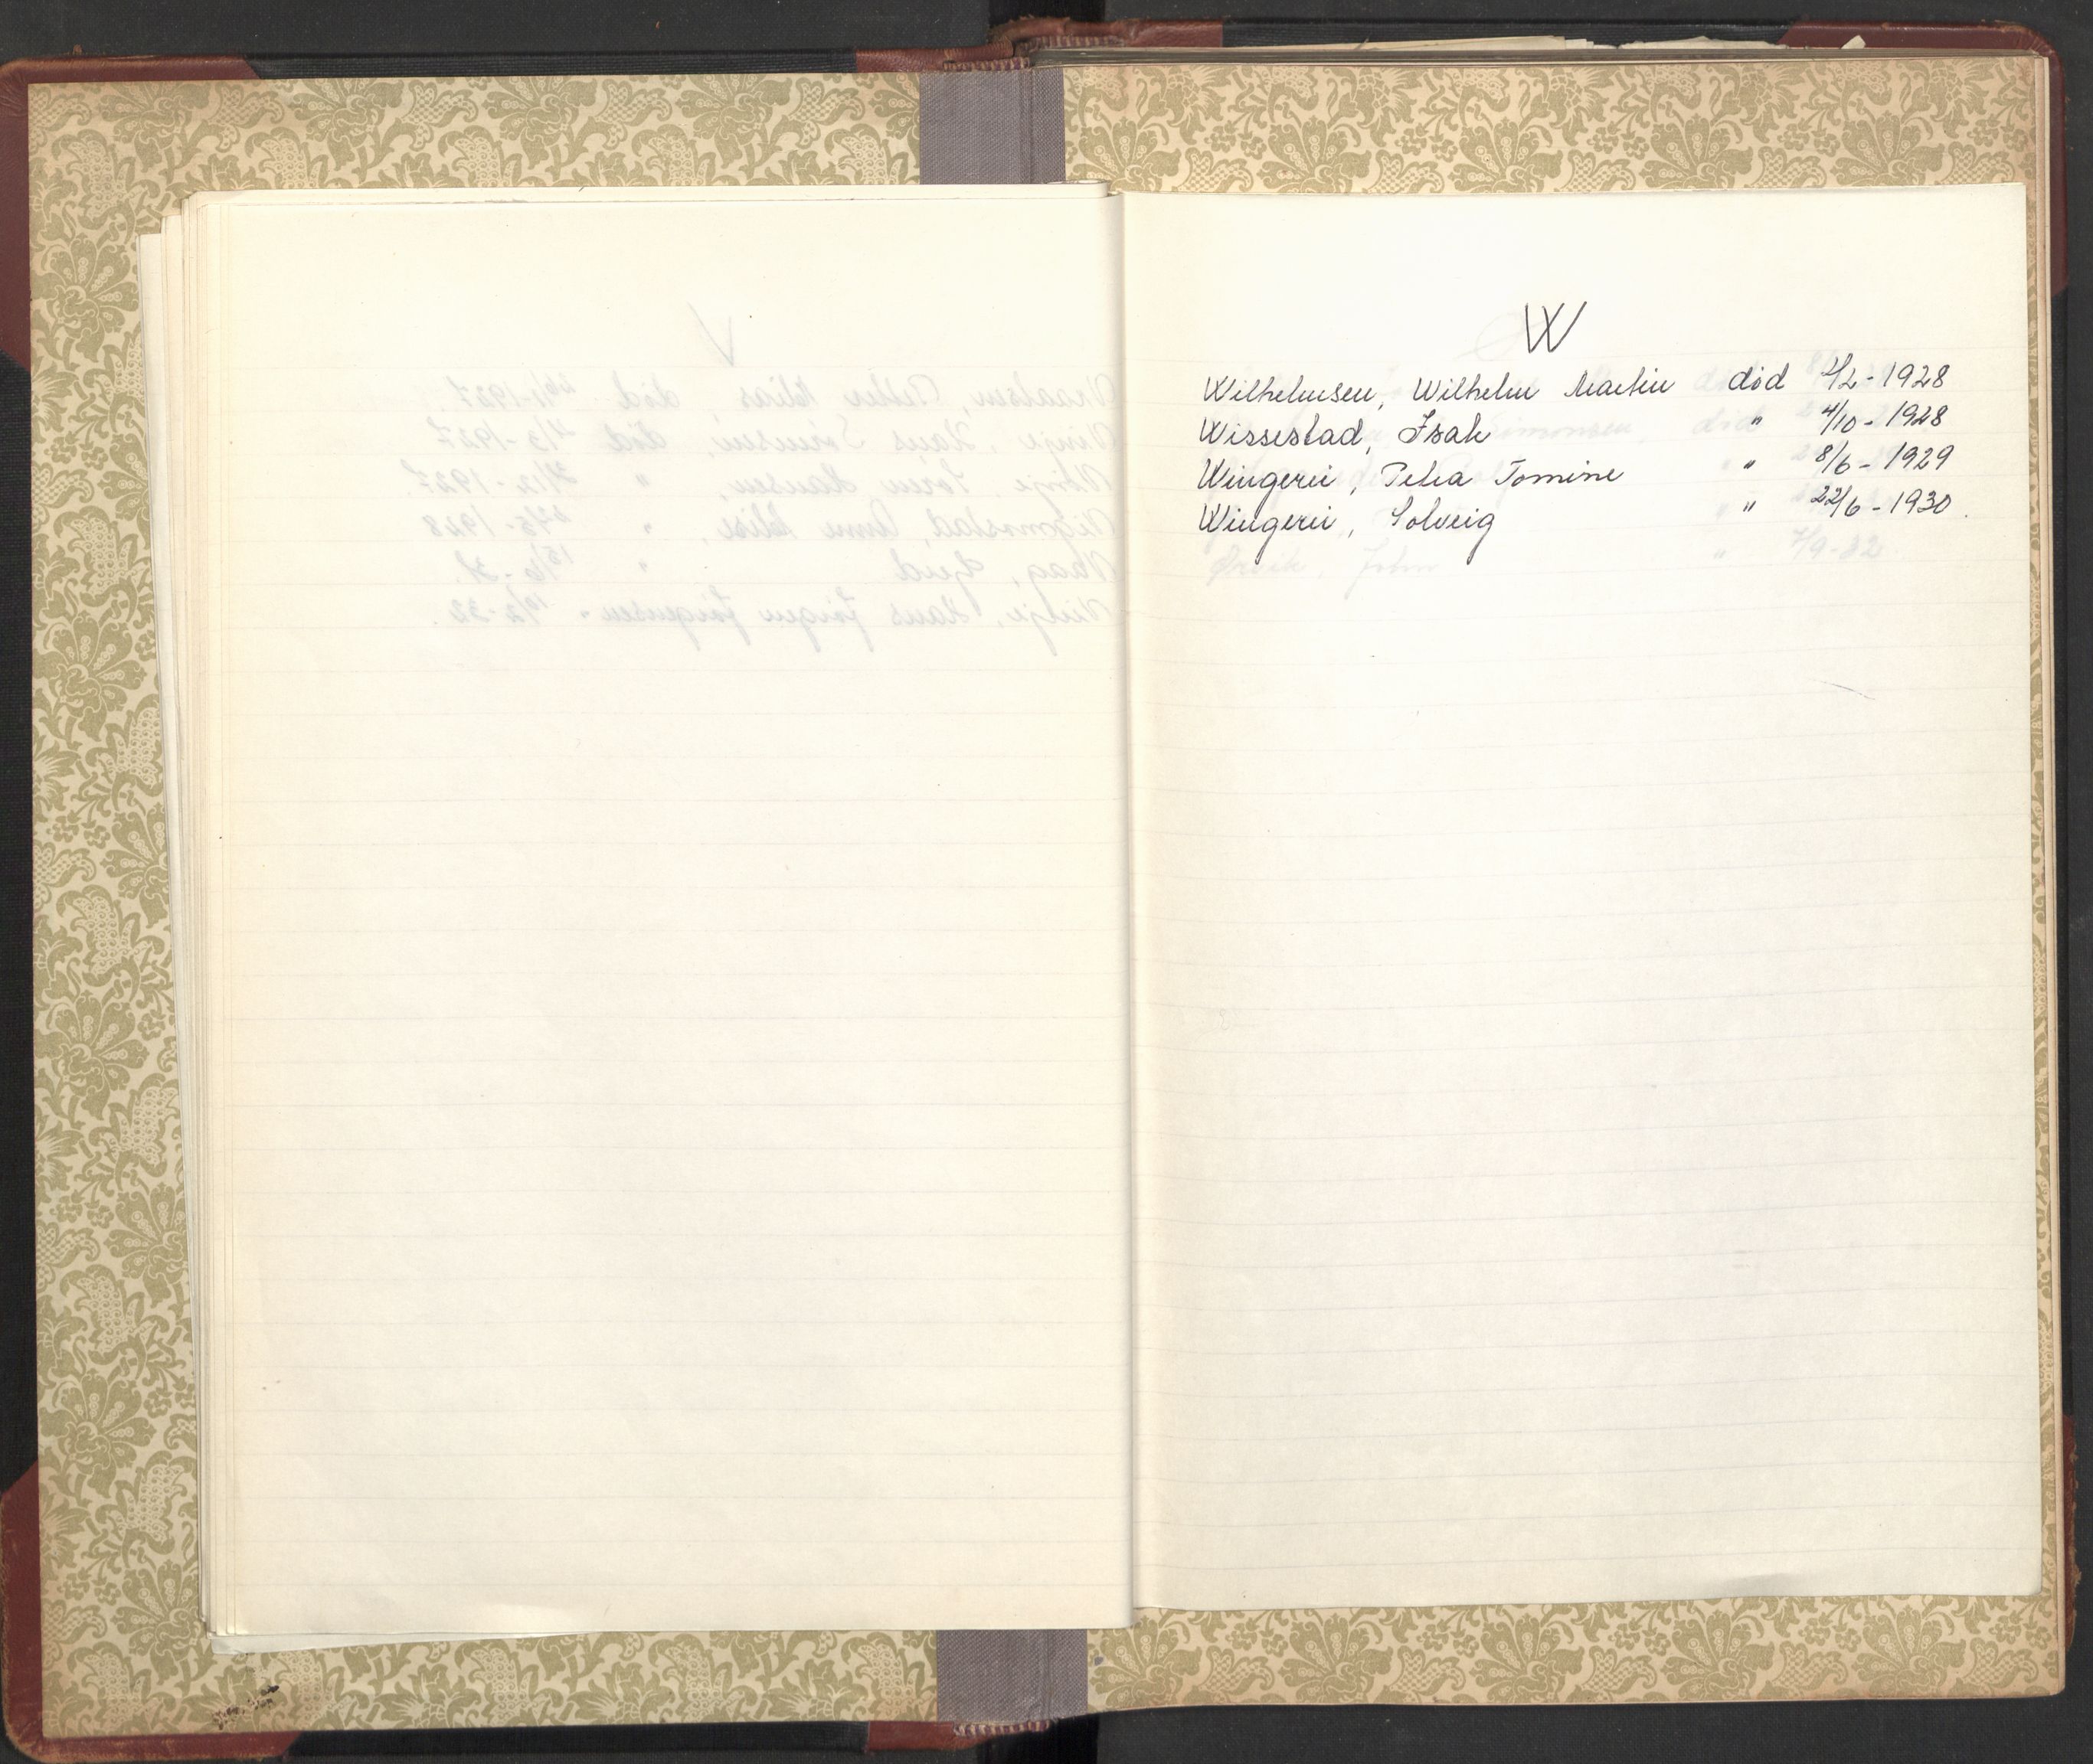 W
Wilhelmsen, Wilhelm Martin død 2/2-1928
Wissestad, Isak " 4/10-1928
Wingerei, Petra Tomine " 8/6-1929
Wingerei, Solveig " 22/6-1930.